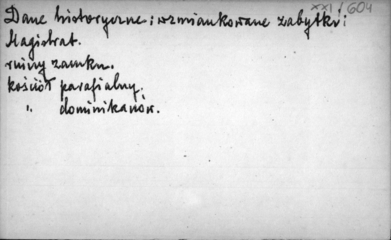 XXI / 604
Dane historyczne i wzmiankowane zabytki:
Magistrat.
ruiny zamku.
kościół parafialny.
" dominikanów.